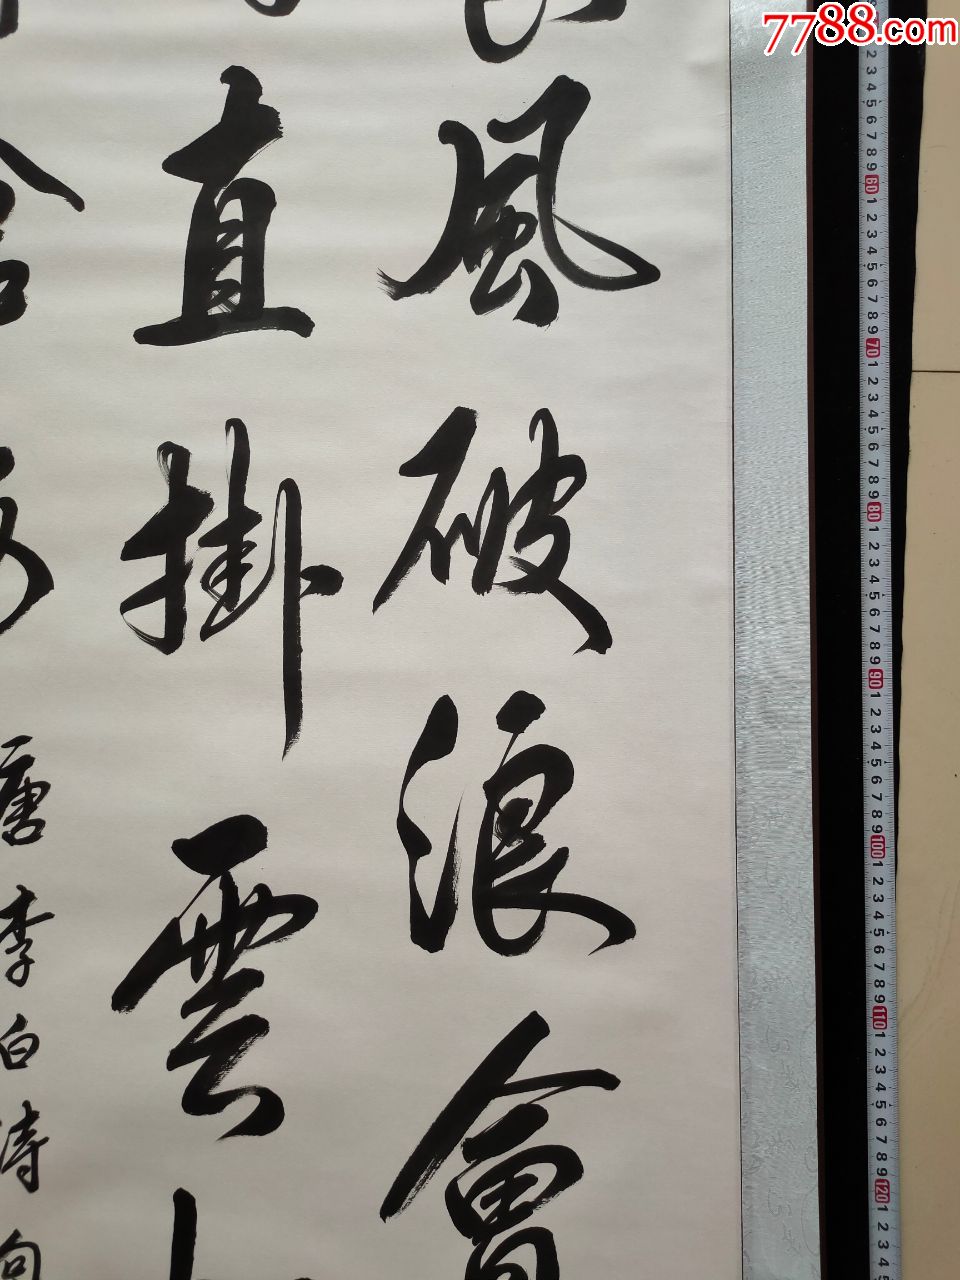 7788.com
風破浪會
直掛雲
唐李白詩句
60 1 2 3 4 5 6 7 8 9 70 1 2 3 4 5 6 7 8 9 80 1 2 3 4 5 6 7 8 9 90 1 2 3 4 5 6 7 8 9 100 1 2 3 4 5 6 7 8 9 110 1 2 3 4 5 6 7 8 9 120 1 2 3 4